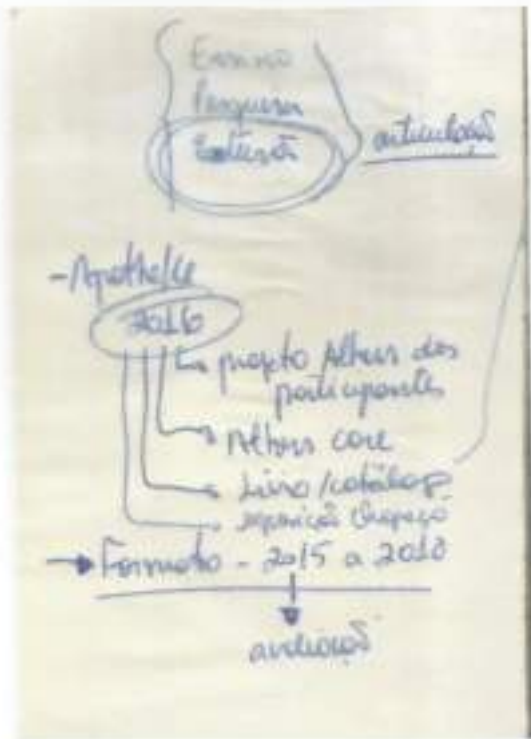 Ensino
Pesquisa
Extensão
articulação
2016
projeto Athos dos
participantes
Athos core
Livro/catálogo
exposição
→ Formato - 2015 a 2018
avaliação